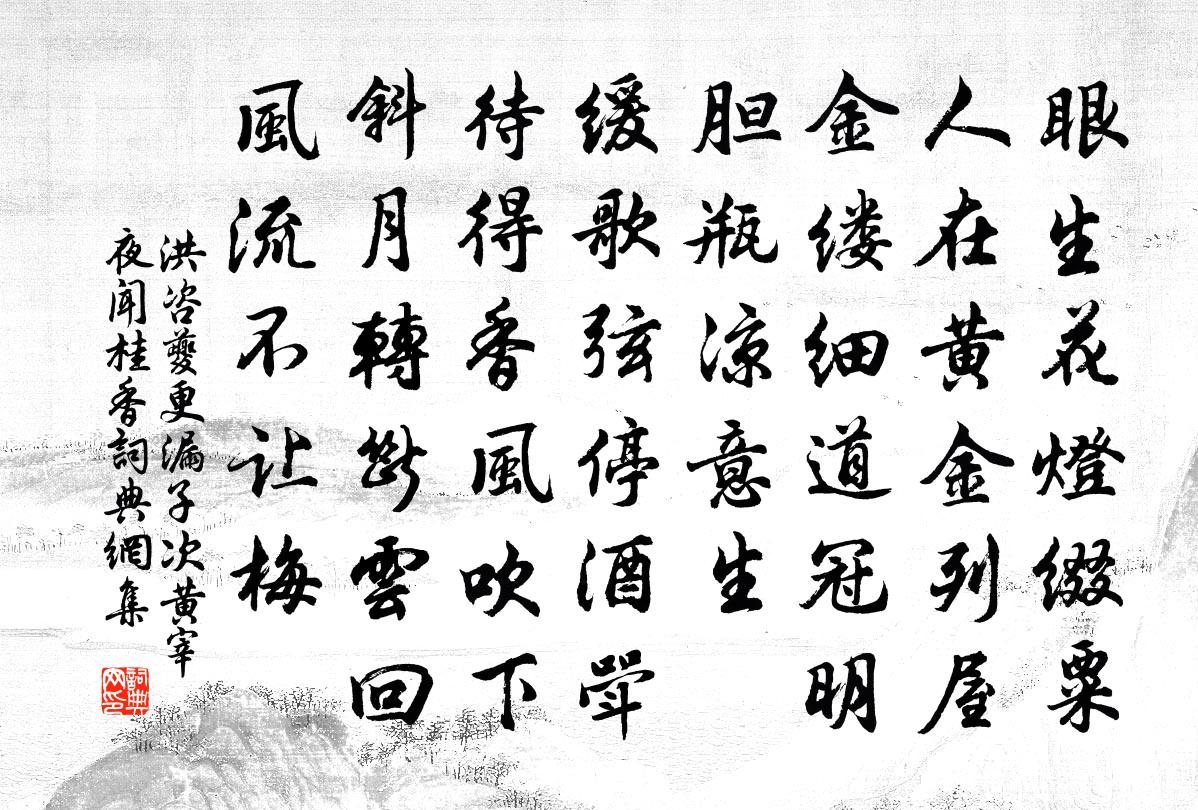 眼生花燈缀粟
人在黄金列屋
金缕细道冠明
胆瓶凉意生
缓歌弦停酒斝
待得香風吹下
斜月轉斷雲回
風流不让梅
洪咨夔更漏子次黄宰
夜闻桂香詞典網集
詞典
网印